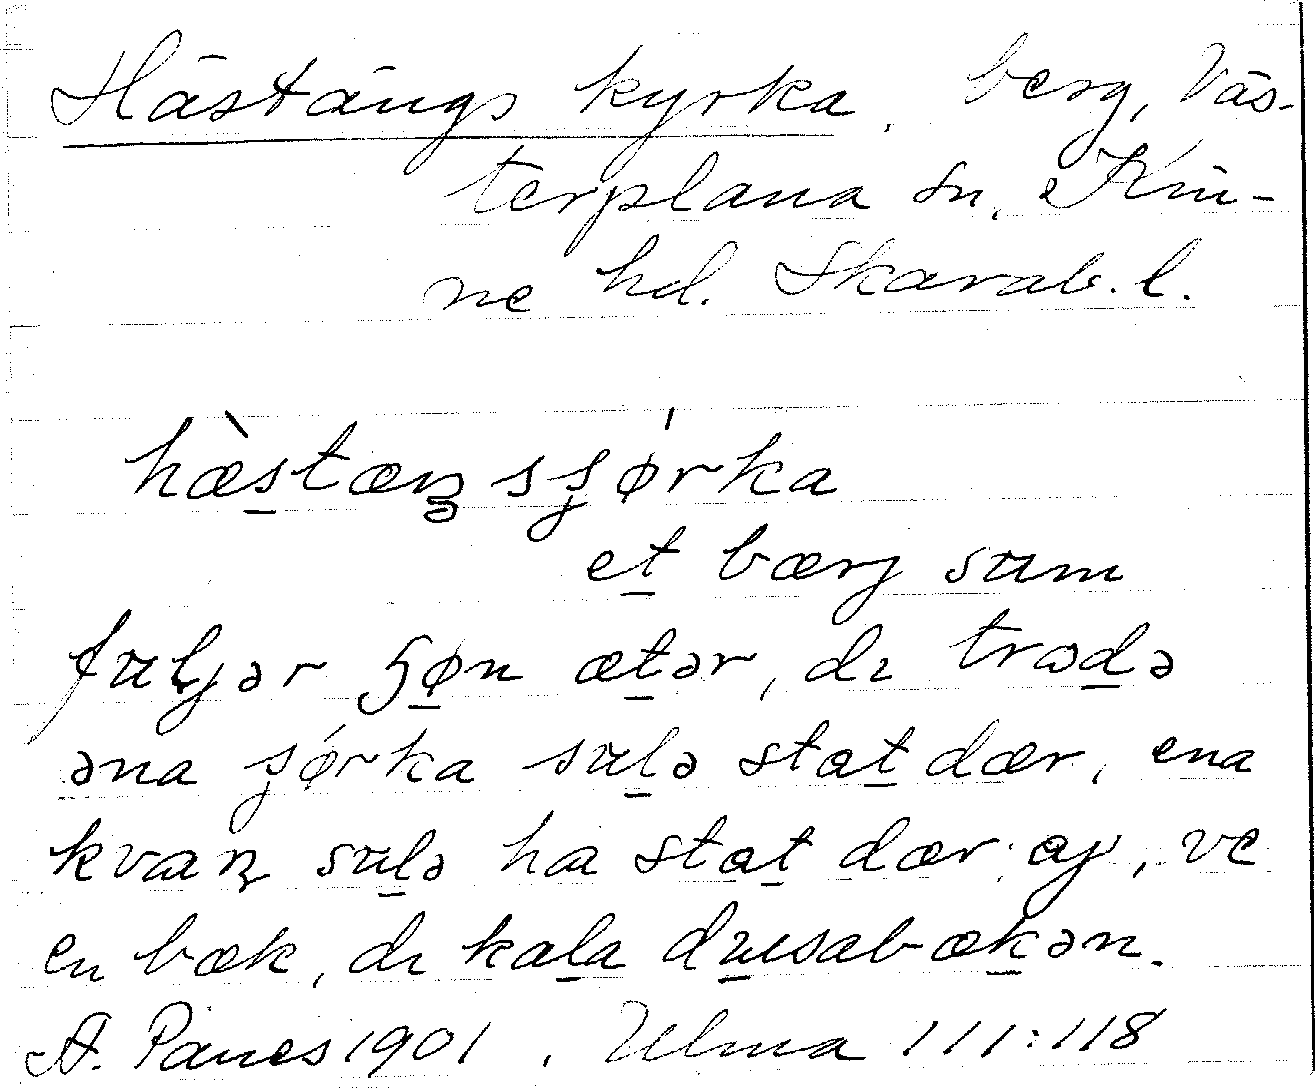 Hästängs kyrka, berg, Väs-
terplana sn, Kin-
ne hd. Skarab. l.
hæ̀s̲tæŋsʂǿrka
et̲ bærj sɷm
fɷljər ʂø̲n æt̲ər, dı trωd̲ə
əna ʂǿrka sɷl̲ə stat̲ dær, ena
kvaɳ sɷl̲ə ha stat̲ dær, ωj, ve
en bæk, dı kal̲a dɯ̲sabæk̲ən.
A. Panes 1901, Ulma 111:118